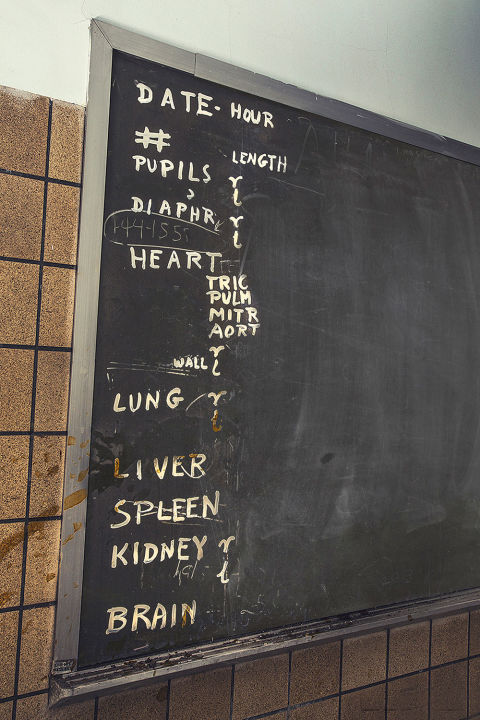 DATE- HOUR
#
LENGTH
PUPILS r
l
DIAPHR r
l
HEART
TRIC
PULM
MITR
AORT
WALL r
l
LUNG r
l
LIVER
SPLEEN
KIDNEY r
l
BRAIN